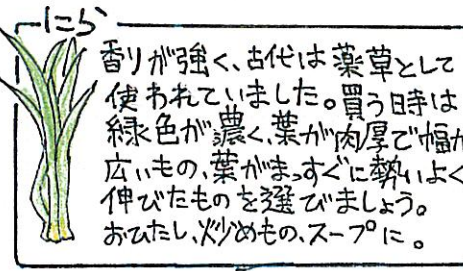 にら
香りが強く、古代は薬草として
使われていました。買う時は
緑色が濃く、葉が肉厚で幅が
広いもの、葉がまっすぐに勢いよく
伸びたものを選びましょう。
おひたし、炒めもの、スープに。